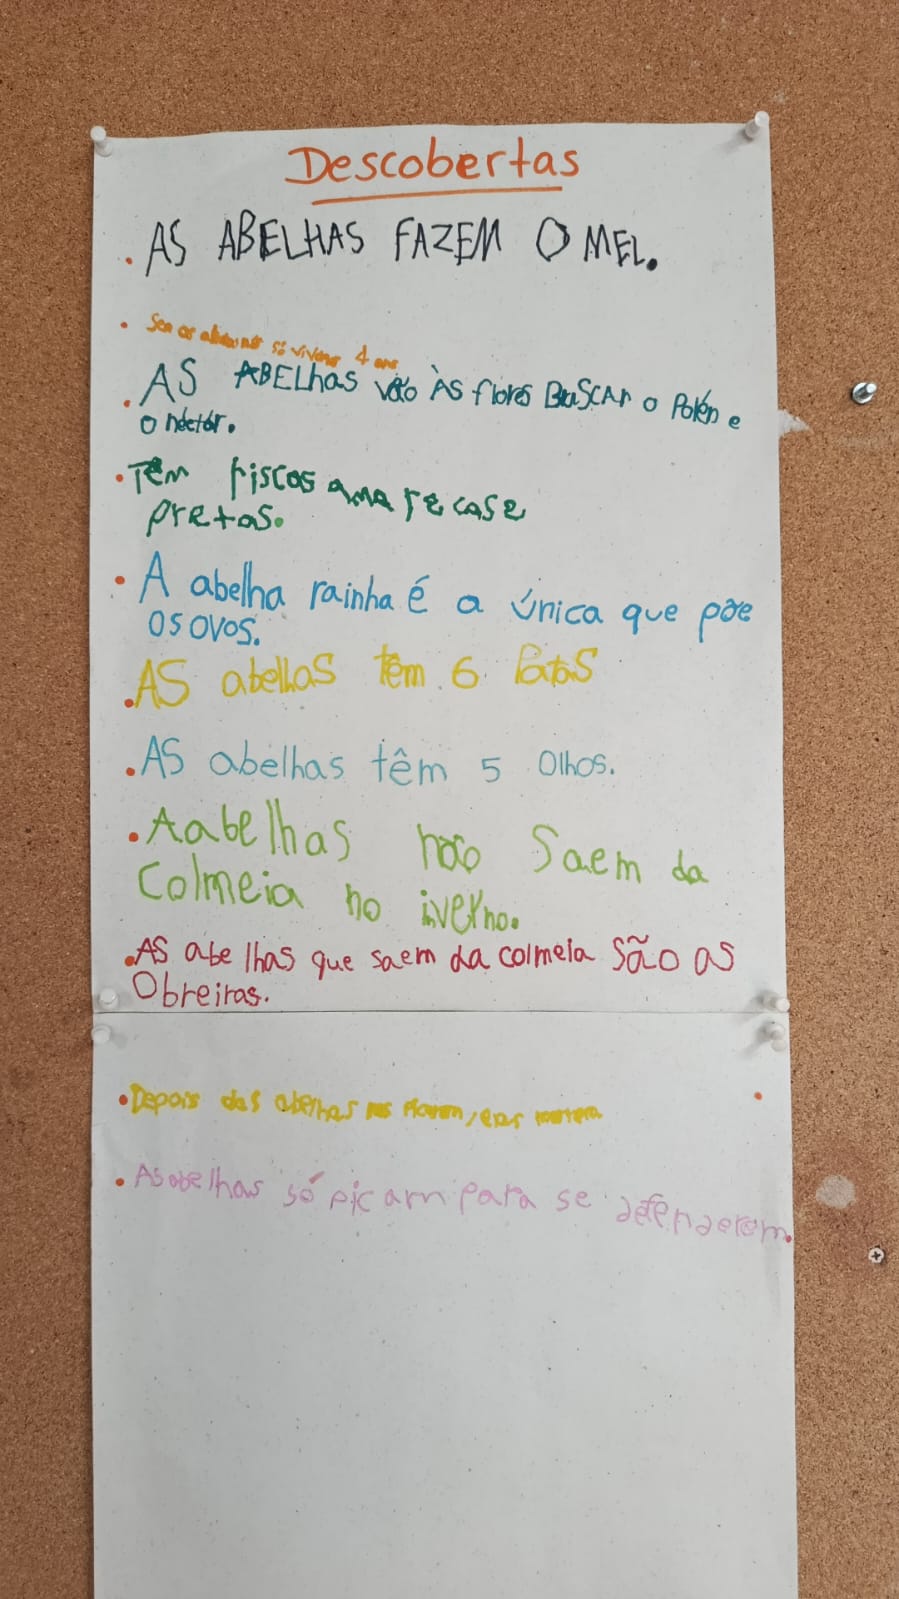 Descobertas
. AS ABELHAS FAZEM O MEL.
. Sem as só vivemos 4 anos
. AS ABELhas vão Às flores BuSCAr o Polén e
o néctár.
. Têm riscos amarecase
pretas.
. A abelha rainha é a única que põe
os ovos.
. AS abelhas têm 6 Patas
. AS abelhas têm 5 Olhos.
. A abelhas não Saem da
Colmeia no iverno.
. AS abelhas que saem da colmeia São as
Obreiras.
. Depois das abelhas nos picarem, elas morrem
. As abelhas só picam para se defenderem.